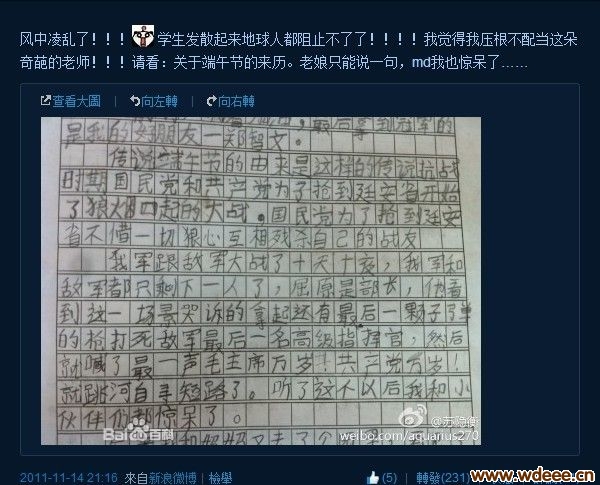 风中凌乱了！！！学生发散起来地球人都阻止不了了！！！！我觉得我压根不配当这朵
奇葩的老师！！！请看：关于端午节的来历。老娘只能说一句，md我也惊呆了……
查看大圖 | 向左轉 | 向右轉
最后拿到冠军的
是我的好朋友一郑智文。
传说端午节的由来是这样的传说抗战
时期国民党和共产党为了抢到延安省开始
了狼烟四起的大战。国民党为了抢到延安
省不惜一切狠心互相残杀自己的战友
我军跟敌军大战了十天十夜，我军和
敌军都只剩下一人了，屈原是部长，他看
到这一场景哭诉的拿起还有最后一颗子弹
的枪打死敌军最后一名高级指挥官，然后
就喊了最一声毛主席万岁！共产党万岁！
就跳河自寻短路了。听了这个以后我和小
伙伴们都惊呆了。
Bai百科
@苏隐衡
weibo.com/aquarius270
2011-11-14 21:16 來自新浪微博 | 檢舉
(5) | 轉發(231)
www.wdeee.cn